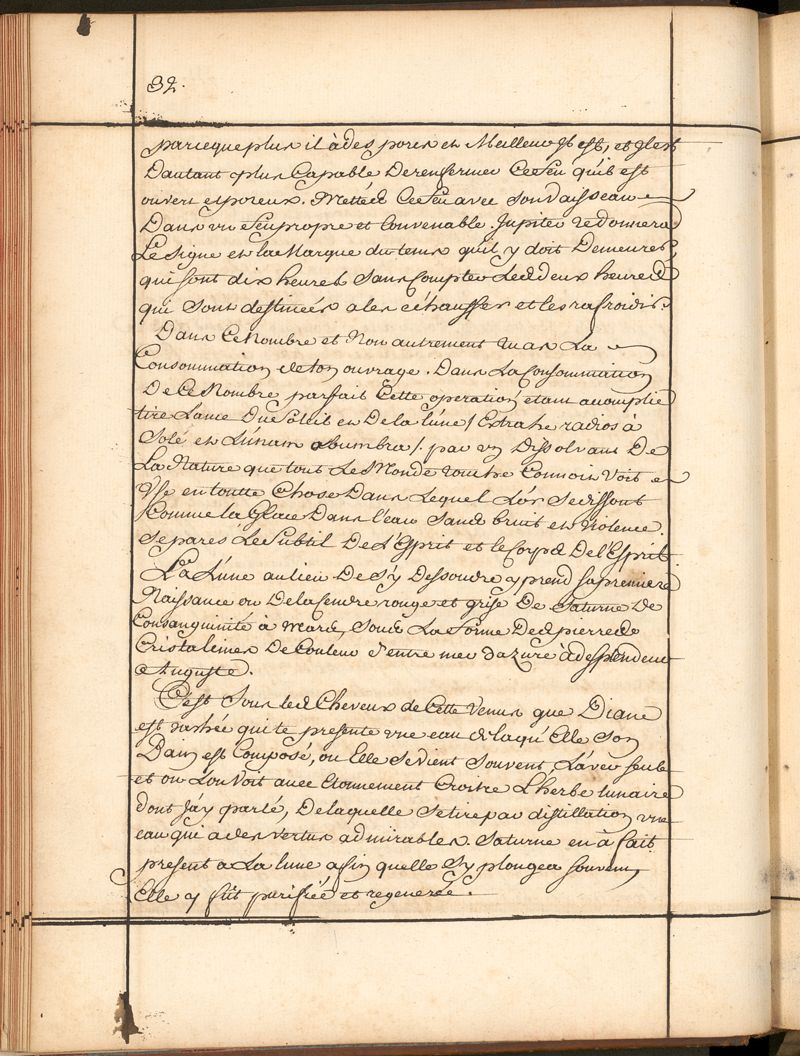 32.
parceque plus il à des pores et Meilleur Jl est, et Jl est
Dautant plus Capable De renfermer Ce feu qu'il est
ouvert et poreux. Mettéz Ce feu avec son Vaisseau
Dans un feu propre et Convenable. Jupiter te donnera
Le Signe et la Marque du tems qu'il y doit Demeurer,
qui sont dix heures sans Compter Les deux heures
qui sont destinées a les échauffer et les rafroidir.
Dans Ce Nombre et Non autrement tu as La
Consommation de ton ouvrage. Dans La Consommation
De Ce Nombre parfait Cette operation étant accomplie
tire L'ame Du Soleil et De la Lune / Extrahe radios à
Sole et Lunam obumbra /. par un Dissolvant De
La Nature que tout Le Monde touche Connoit Voit et
Use en toutte Chose Dans Lequel L'or Se dissout
Comme la Glace Dans l'eau sans bruit et Violence.
Separes Le Subtil De L'Esprit et le Corps De l'Esprit.
La Lune au lieu De s'y Dessoudre y prend sa premiere
Naissance ou De la Cendre rouge et grise De Saturne De
Consanguinité à Mars, Sous La Forme Des pierres
Cristalines De Couleur d'entre mer dazure à de splendeur
Auguste.
C'est Sous les Cheveux de Cette Venus que Diane
est cachée qui te presente une eau de laqu'Elle Son
Bain est Composé, ou Elle se vient Souvent Laver seule
et ou Lon Voit avec Etonnement Croitre L'herbe lunaire
dont Jay parlé, De laquelle Se tire par distillation une
eau qui a des vertus admirables. Saturne en à fait
present a La lune afin quelle S'y plongea souvent
Elle y fût purifiée et regenerée.